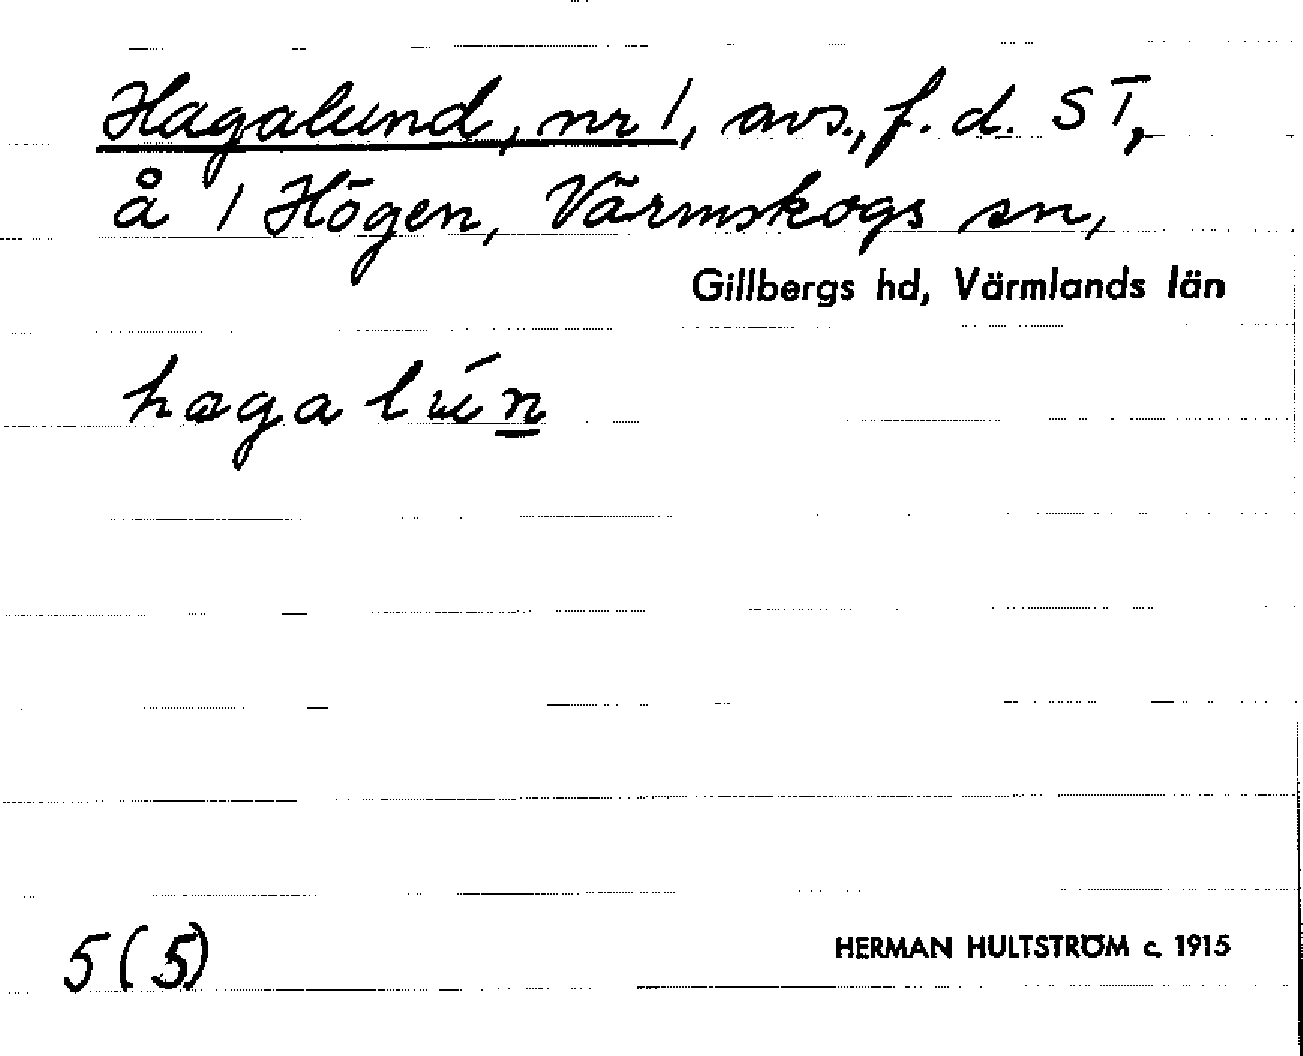 Hagalund, nr 1, avs., f. d. ST,
å 1 Högen, Värmskogs sn,
Gillbergs hd, Värmlands län
hagalún
5 (5)
HERMAN HULTSTRÖM c. 1915